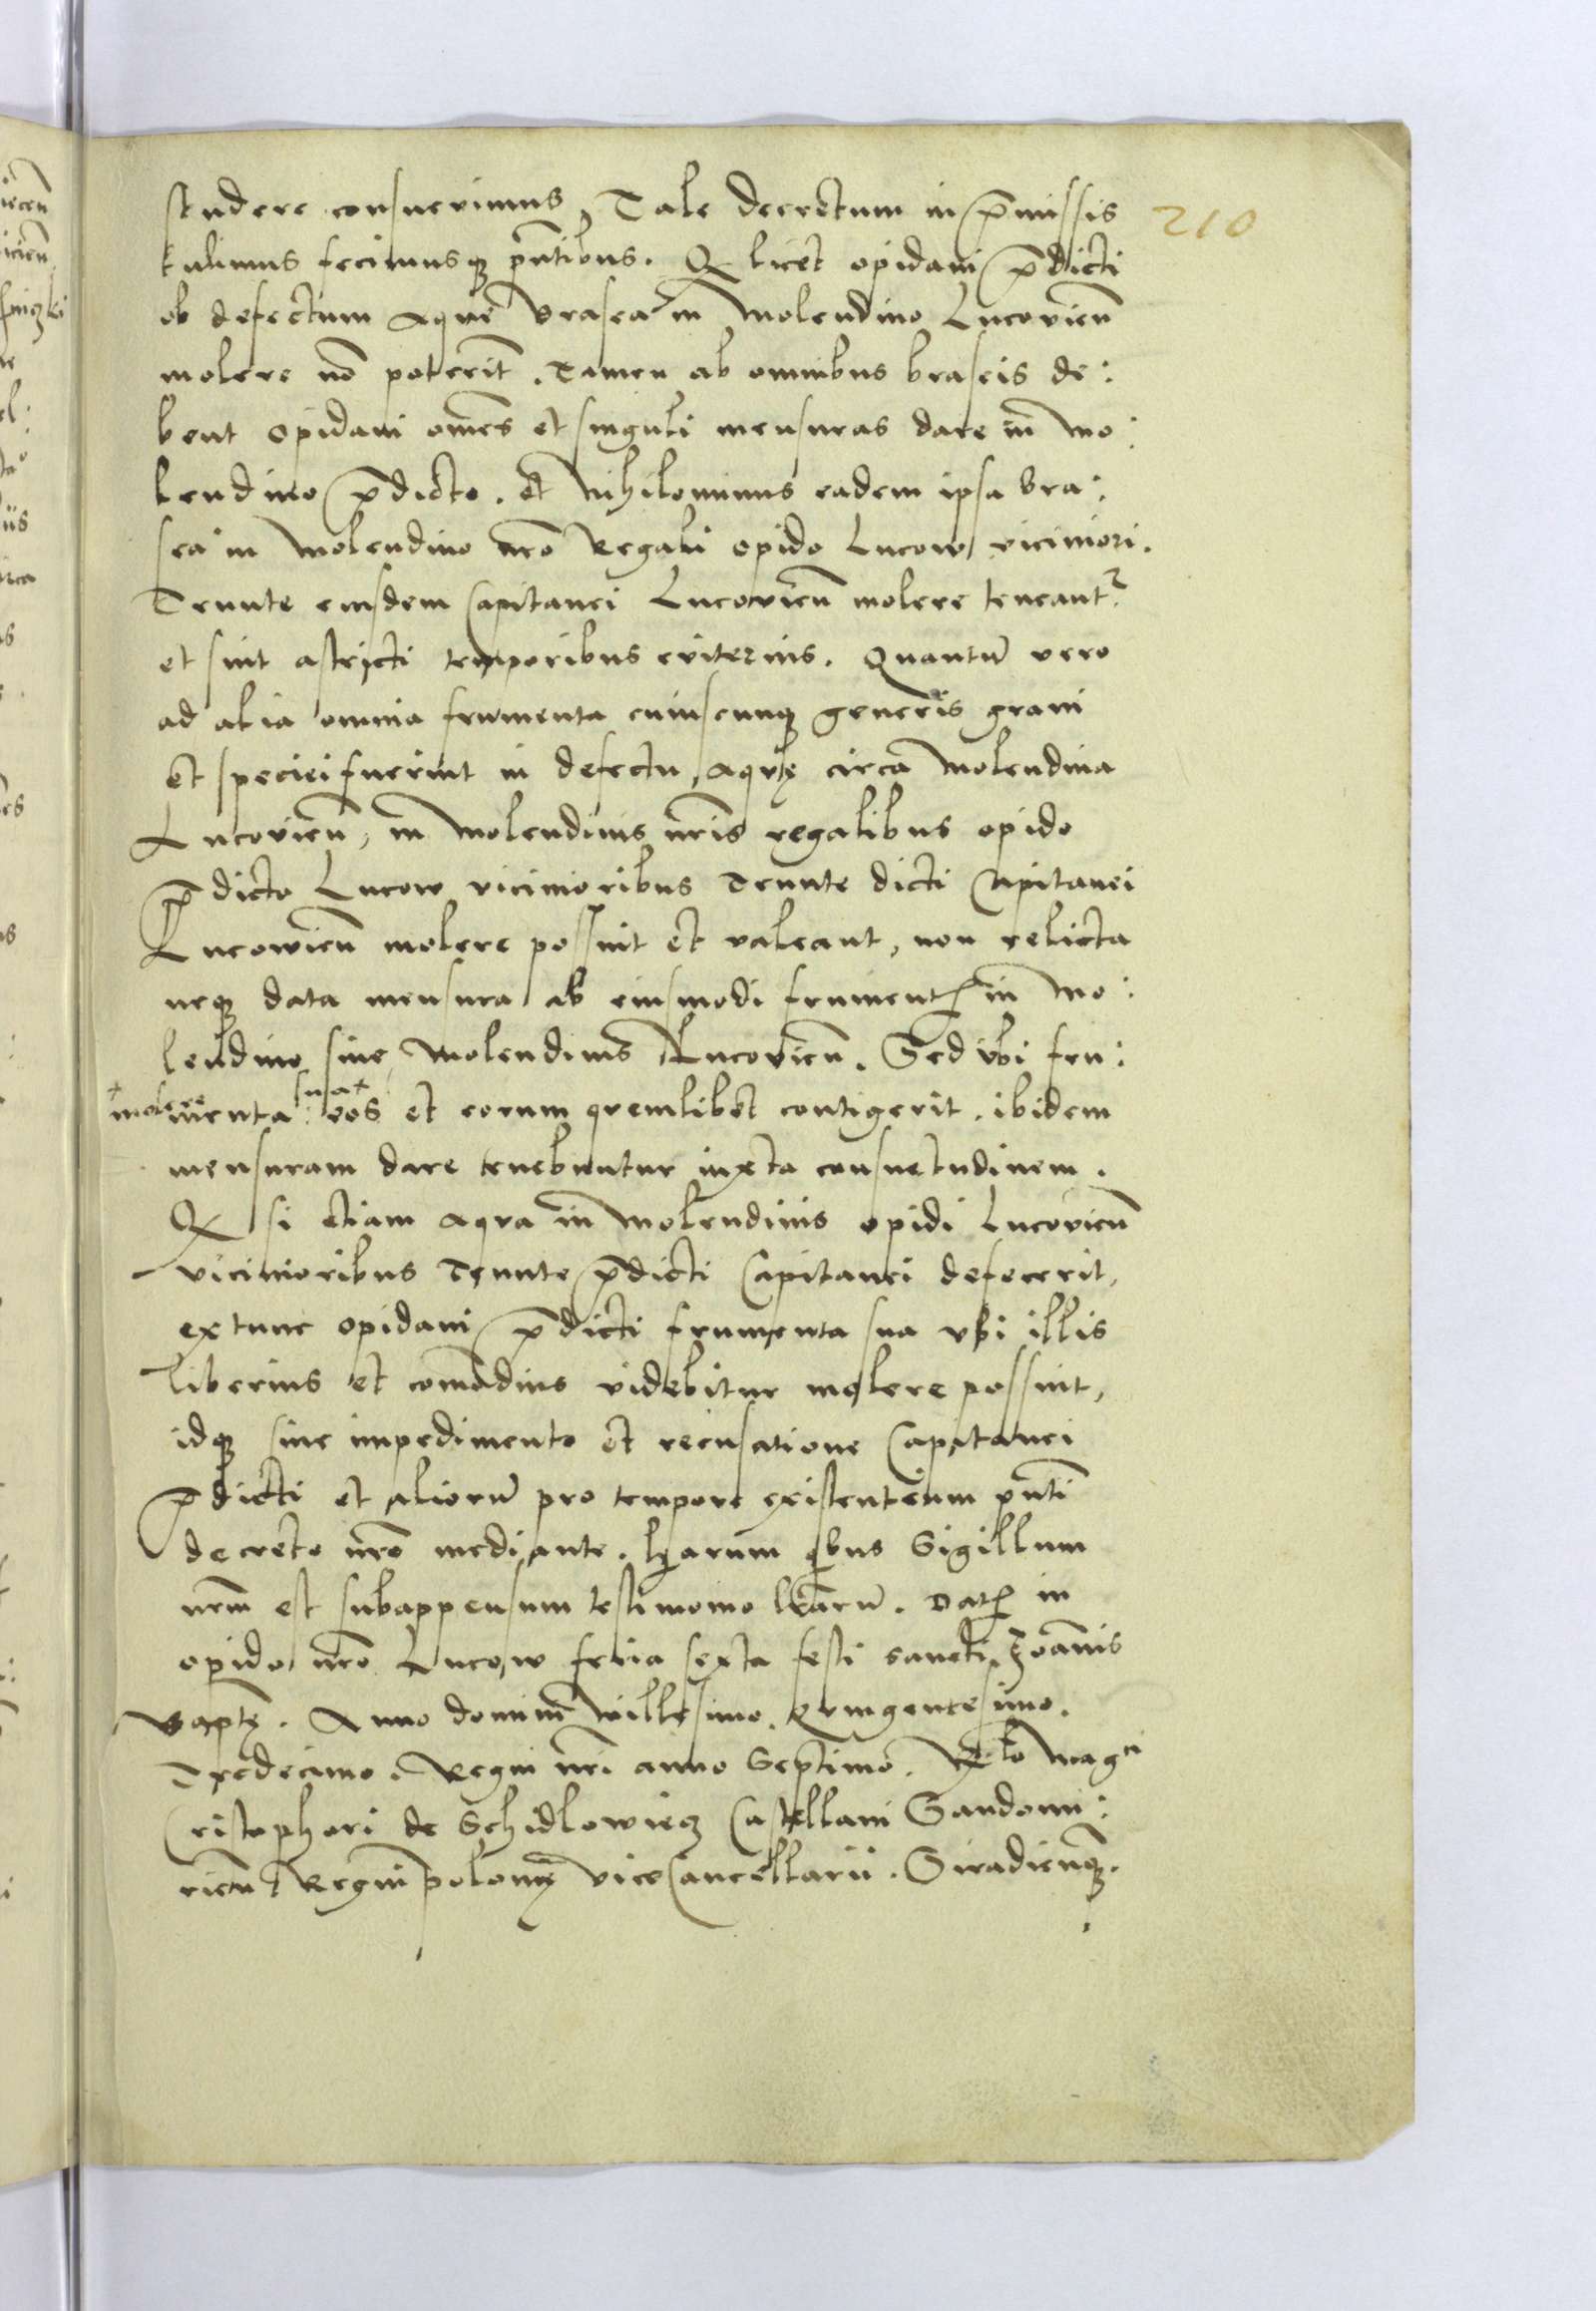 210
studere consuevimus, Tale decretum in p̄missis
tulimus fecimusq; pn̄tibus. Q licet opidani p̄dicti
ob defectum aque brasea in Molendino Lucovien̄
molere nō poterīt. Tamen ab omnibus braseis de:
bent opidani om̄es et singuli mensuras dare in Mo:
lendino p̄dicto. et Nihilominus eadem ipsa bra:
sea in Molendino nr̄o Regali opido Lucow viciniori.
Tenute eiusdem Capitanei Lucovien̄ molere teneant᷑
et sint astricti temporibus eviternis. Quantū vero
ad alia omnia frumenta cuiuscunq; generis grani
et speciei fuerint in defectu aquę circa Molendina
Lucovien̄, in Molendinis nr̄is regalibus opido
p̄dicto Lucow vicinioribus Tenute dicti Capitanei
Lucowien̄ molere possint et valeant, non relicta
neq; data mensura ab eiusmodi frument in Mo:
lendino sive Molendinis Lucovien̄. Sed ubi fru:
+molere menta sua+ eos et eorum quemlibet contigerit. ibidem
mensuram dare tenebuntur iuxta consuetudinem.
Q si etiam aqua in Molendinis opidi Lucovien̄
vicinioribus Tenute p̄dicti Capitanei defecerit,
extunc opidani p̄dicti frumenta sua ubi illis
liberius et com̄odius videbitur molere possint,
idq; sine impedimento et recusatione Capitanei
p̄dicti et aliorū pro tempore existentium pn̄ti
decreto nr̄o mediante. Harum qbus Sigillum
nr̄m est subappensum testimonio lr̄arū. Dat in
opido nr̄o Lucow feria sexta festi sancti Joan̄is
Baptę. Anno domini Millesimo. Quingentesimo.
Tredecimo. Regni nr̄i anno Septimo. Rel̄o Mag^ci
Cristophori de Schidlowiecz Castellani Sandomi:
rien̄ Regni polonię viceCancellarii. Siradien̄q;.